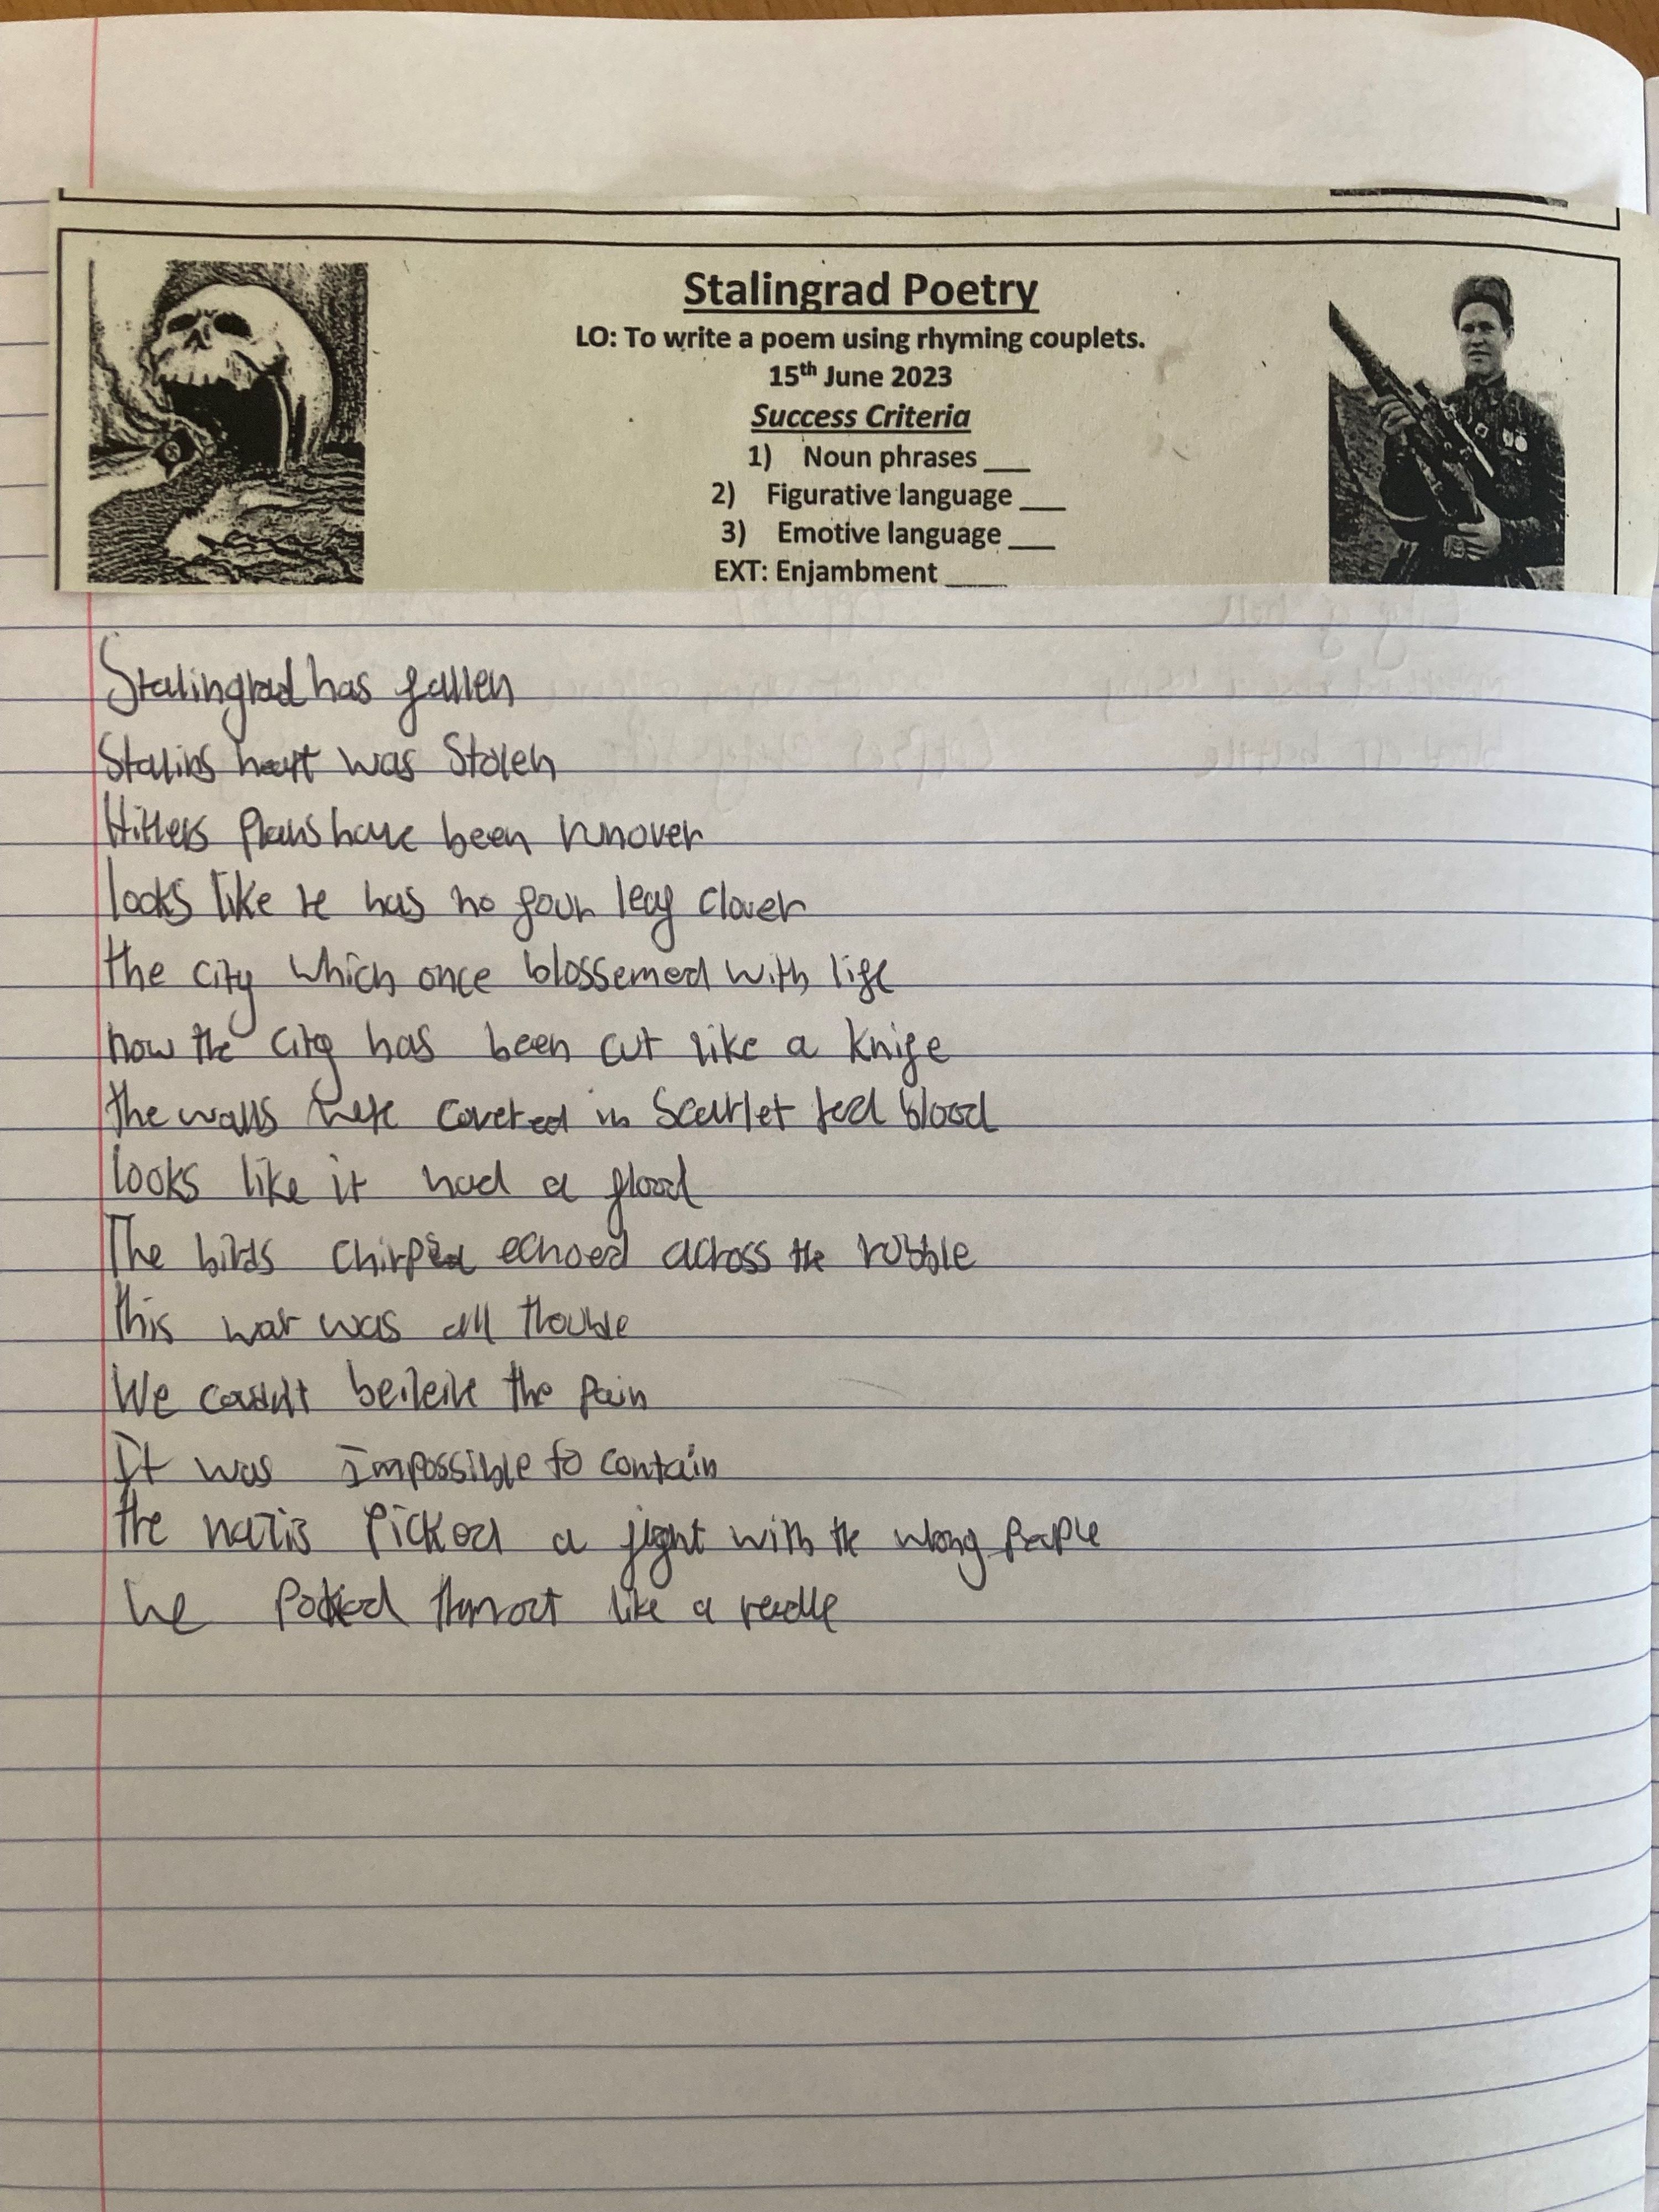 Stalingrad Poetry
LO: To write a poem using rhyming couplets.
15th June 2023
Success Criteria
1) Noun phrases ___
2) Figurative language ___
3) Emotive language ___
EXT: Enjambment ____
Stalingrad has fallen
Stalins heart was Stolen
Hitlers Plans have been runover
looks like he has no four leaf clover
the city which once blossemed with life
now the city has been cut like a knife
the walls were covered in Scarlet red blood
looks like it had a flood
The birds chirped echoed across the rubble
this war was all trouble
We couldnt beileive the pain
It was impossible to contain
the natis Picked a fight with the wrong people
we Poked them out like a needle